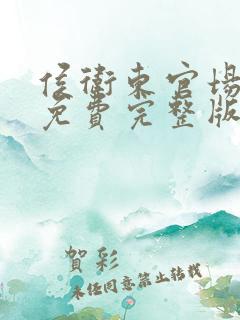 侯衛東官場
免費完整版
賀彩
未経同意禁止转载